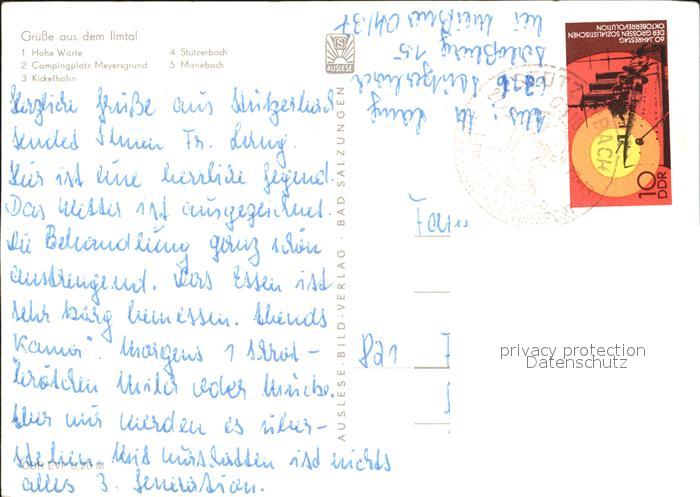 Grüße aus dem Ilmtal
1 Hohe Warte
2 Campingplatz Meyersgrund
3 Kickelhahn
4 Stützerbach
5 Manebach
AUSLESE
Herzliche Grüße aus Stützerbach
sendet Ihnen Fr. Lang.
Hier ist eine herrliche Gegend.
Das Wetter ist ausgezeichnet.
Die Behandlung ganz schön
anstrengend. Das Essen ist
sehr karg bemessen. Abends
Morgens 1 Schrot-
brötchen
Aber wir werden es über-
stehen. ist nichts
alles 3. Generation.
EVP 0,20 M
AUSLESE-BILD-VERLAG · BAD SALZUNGEN
Abs.: Lang
Stützerbach
Schloßberg 15
60. JAHRESTAG
DER GROSSEN SOZIALISTISCHEN
OKTOBERREVOLUTION
10
DDR
Fam
821
privacy protection
Datenschutz